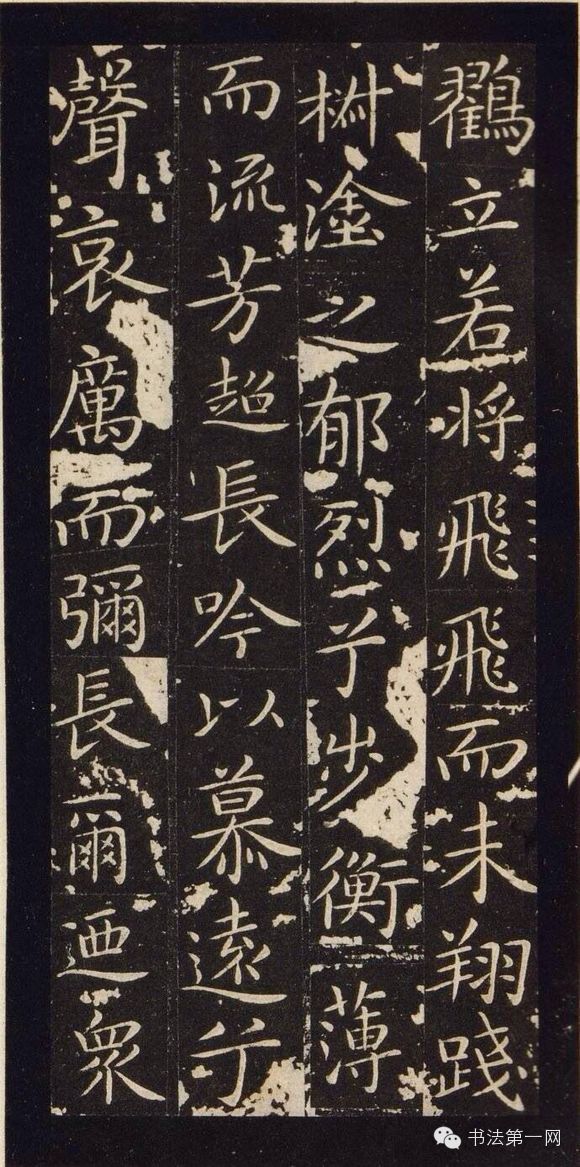 鶴立若將飛飛而未翔踐
椒塗之郁烈兮步衡薄
而流芳超長吟以慕遠兮
聲哀厲而彌長爾迺衆
书法第一网